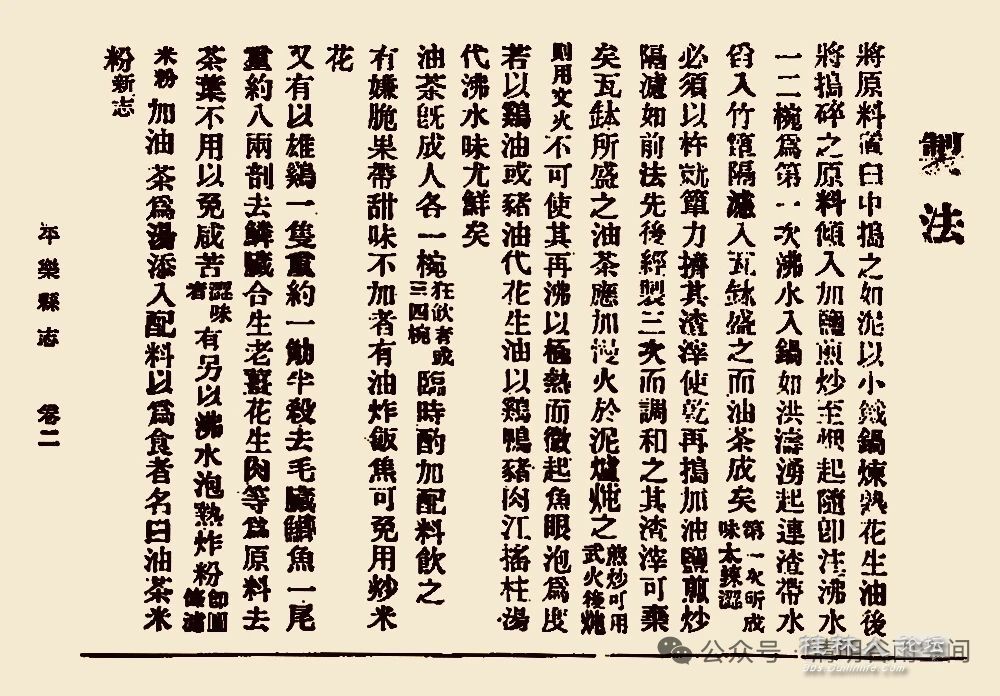 製法
將原料置臼中搗之如泥以小鐵鍋煉熟花生油後
將搗碎之原料傾入加鹽煎炒至烟起隨即注沸水
一二椀為第一次沸水入鍋如洪濤湧起連渣帶水
舀入竹篳隔濾入瓦鉢盛之而油茶成矣第一次所成味太辣澀
必須以杵就篳力擠其渣滓使乾再搗加油鹽煎炒
隔濾如前法先後經製三次而調和之其渣滓可棄
矣瓦鉢所盛之油茶應加慢火於泥爐炖之煎炒可用武火後炖
則用文火不可使其再沸以極熱而微起魚眼泡為度
若以鷄油或豬油代花生油以鷄鴨豬肉江搖柱湯
代沸水味尤鮮矣
油茶旣成人各一椀狂飲者或三四椀臨時酌加配料飲之
有嫌脆果帶甜味不加者有油炸飯焦可免用炒米
花
又有以雄鷄一隻重約一觔半殺去毛臟鯽魚一尾
重約八兩剖去鱗臟合生老薑花生肉等為原料去
茶葉不用以免咸苦澀味者有另以沸水泡熟炸粉即圓條濾
米粉加油茶為湯添入配料以為食者名曰油茶米
粉新志
平樂縣志 卷二
公众号·清明谷雨空间
桂林人论坛